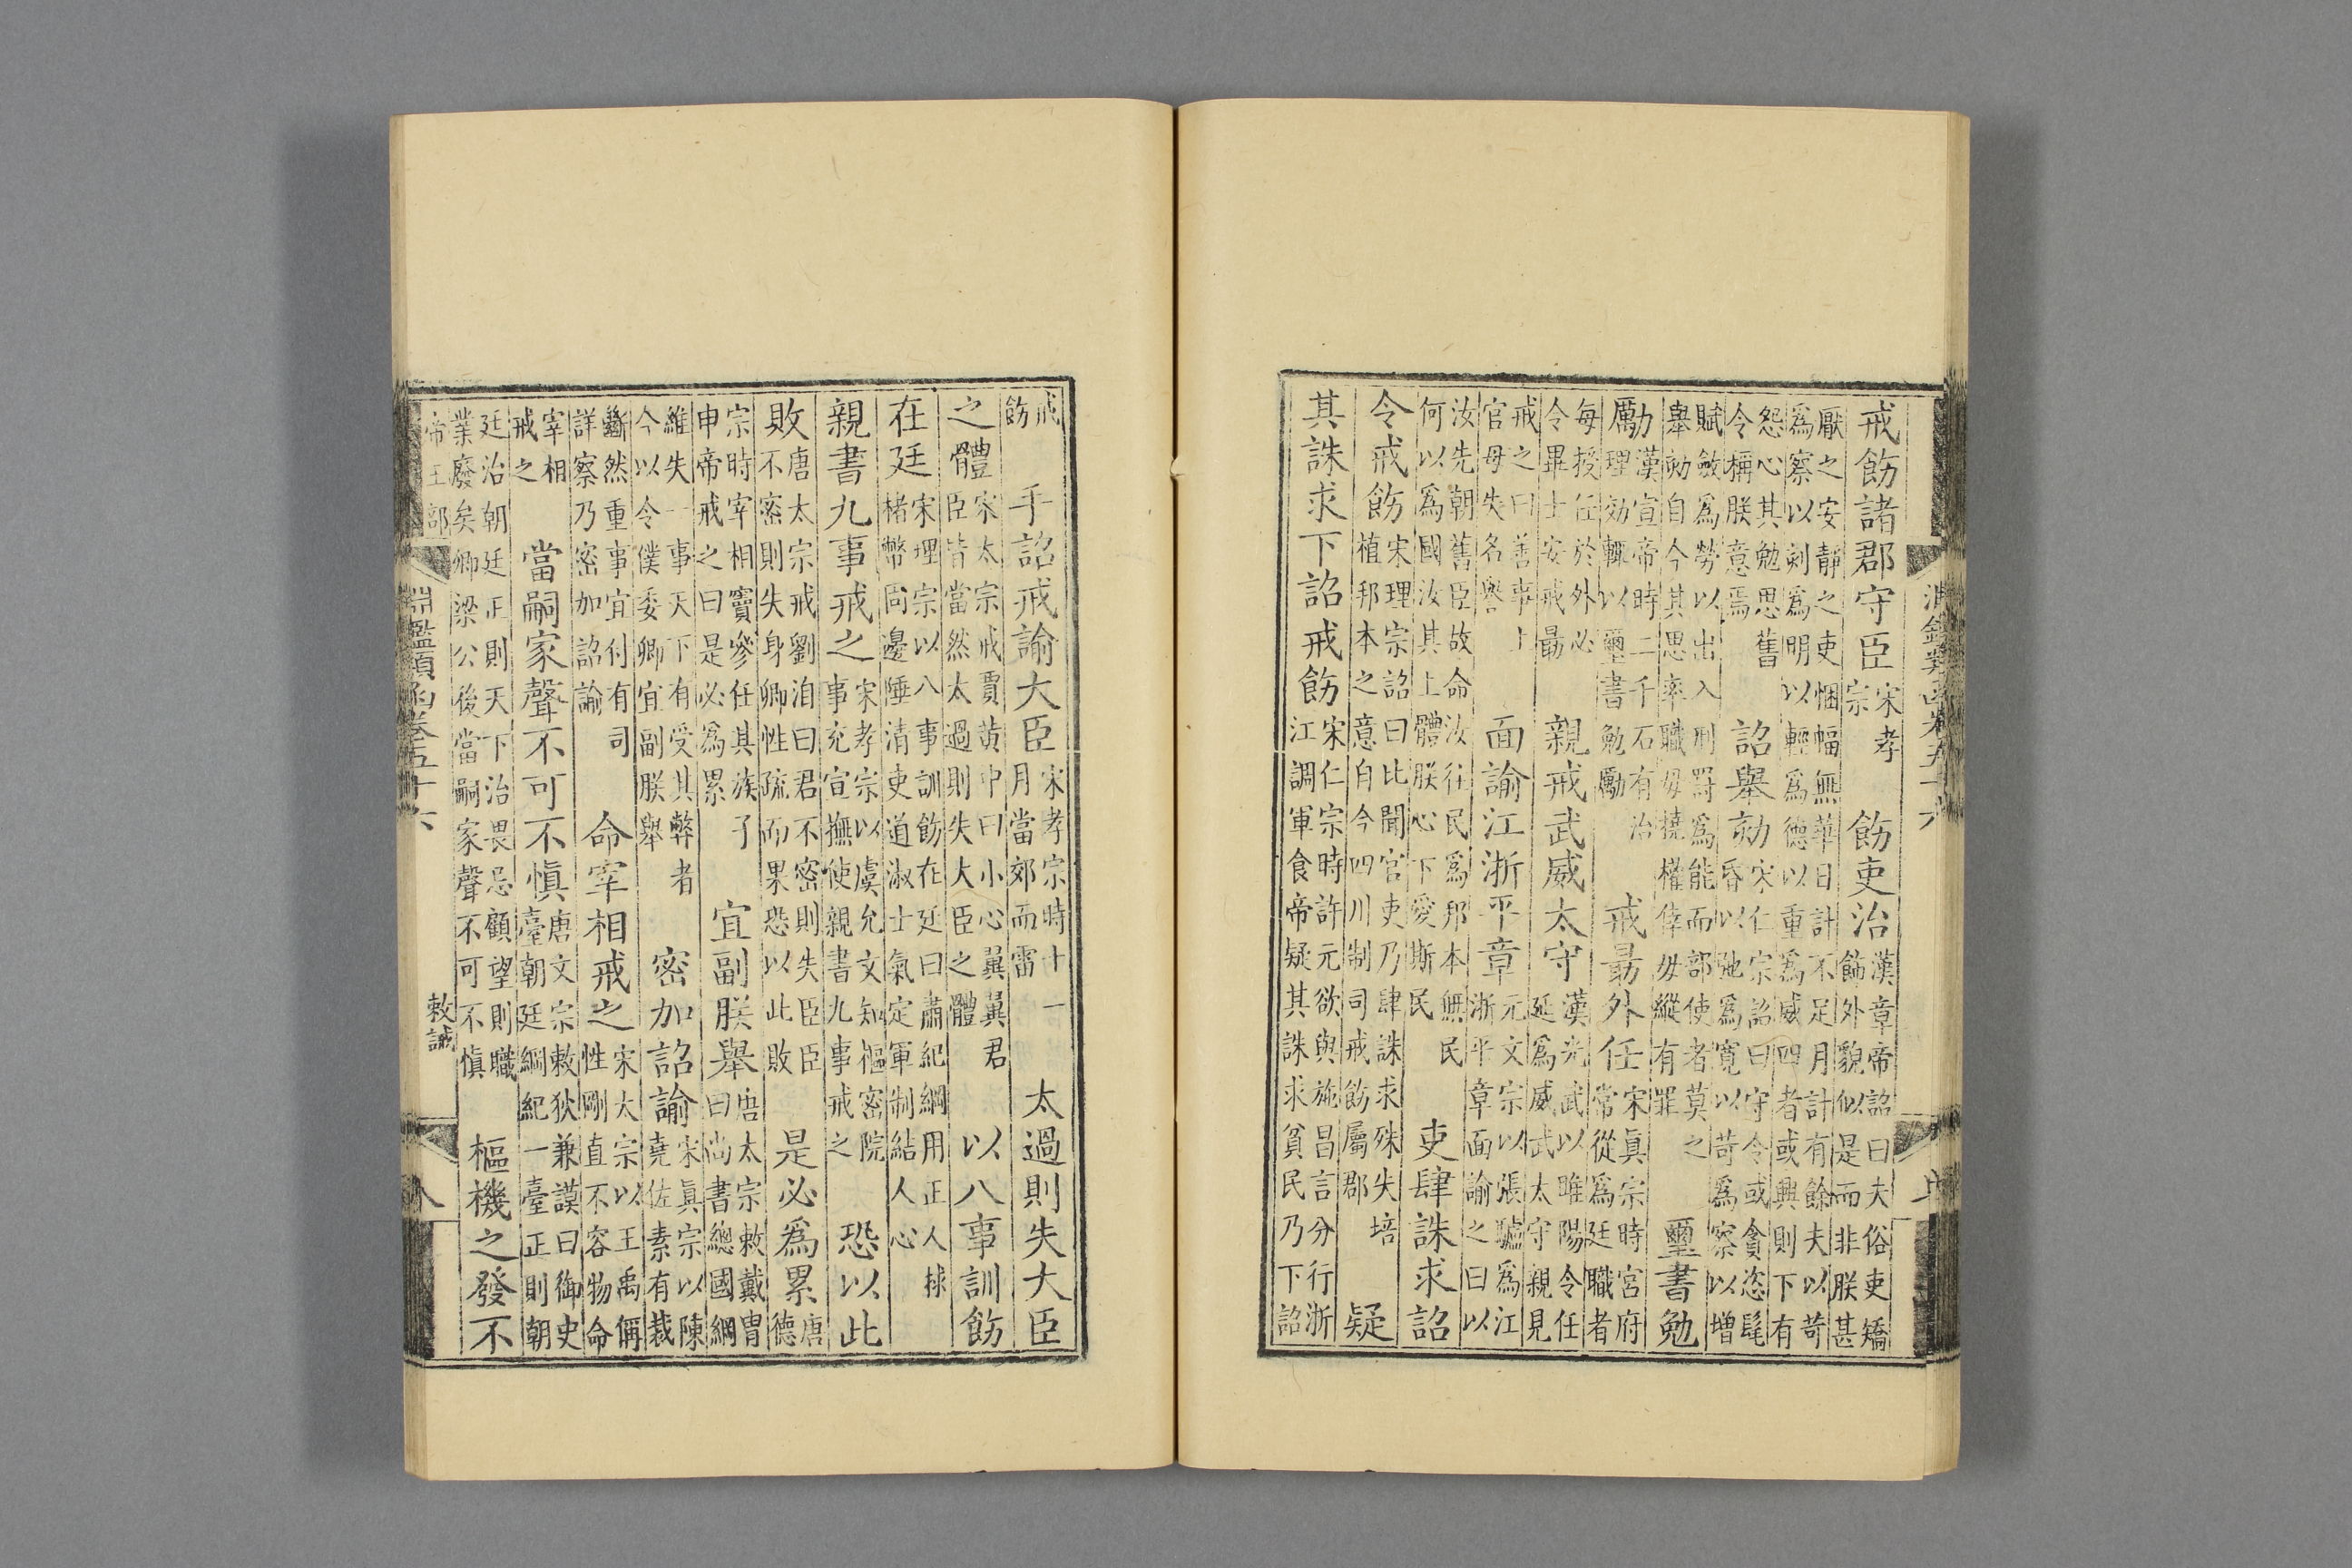 淵鑑類函卷五十六
戒飭諸郡守臣宋孝宗　飭吏治漢章帝詔曰夫俗吏矯飾外貌似是而非朕甚
厭之安靜之吏悃愊無華日計不足月計有餘夫以苛爲察以刻爲明以輕爲德以重爲威四者或興則下有
怨心其勉思舊令稱朕意焉　詔舉劾宋仁宗詔曰守令或貪恣髦昏以弛爲寬以苛爲察以增
賦斂爲勞以出入刑罸爲能而部使者莫之舉劾自今其思率職毋撓權倖毋縱有罪　璽書勉
勵漢宣帝時二千石有治理効輒以璽書勉勵　戒勗外任宋眞宗時宮府常從爲廷職者
每授任於外必令畢士安戒勗　親戒武威太守漢光武以睢陽令任延爲威武太守親見
戒之曰善事上官毋失名譽　面諭江浙平章元文宗以張驢爲江浙平章面諭之曰以
汝先朝舊臣故命汝往民爲邦本無民何以爲國汝其上體朕心下愛斯民　吏肆誅求詔
令戒飭宋理宗詔曰比聞官吏乃肆誅求殊失培植邦本之意自今四川制司戒飭屬郡　疑
其誅求下詔戒飭宋仁宗時許元欲與施昌言分行浙江調軍食帝疑其誅求貧民乃下詔
戒飭　手詔戒諭大臣宋孝宗時十一月當郊而雷　太過則失大臣
之體宋太宗戒賈黃中曰小心翼翼君臣皆當然太過則失大臣之體　以八事訓飭
在廷宋理宗以八事訓飭在廷曰肅紀綱用正人救楮幣固邊陲清吏道淑士氣定軍制結人心
親書九事戒之宋孝宗以虞允文知樞密院事充宣撫使親書九事戒之　恐以此
敗唐太宗戒劉洎曰君不密則失臣臣不密則失身卿性疏而果恐以此敗　是必爲累唐德
宗時宰相竇參任其族子申帝戒之曰是必爲累　宜副朕舉唐太宗敕戴冑曰尚書總國綱
維失一事天下有受其弊者今以令僕委卿宜副朕舉　密加詔諭宋眞宗以陳堯佐素有裁
斷然重事宜付有司詳察乃密加詔諭　命宰相戒之宋太宗以王禹偁性剛直不容物命
宰相戒之　當嗣家聲不可不愼唐文宗敕狄兼謨曰御史臺朝廷綱紀一臺正則朝
廷治朝廷正則天下治畏忌顧望則職業廢矣卿梁公後當嗣家聲不可不愼　樞機之發不
帝王部　淵鑑類函卷五十六　敕誡　八